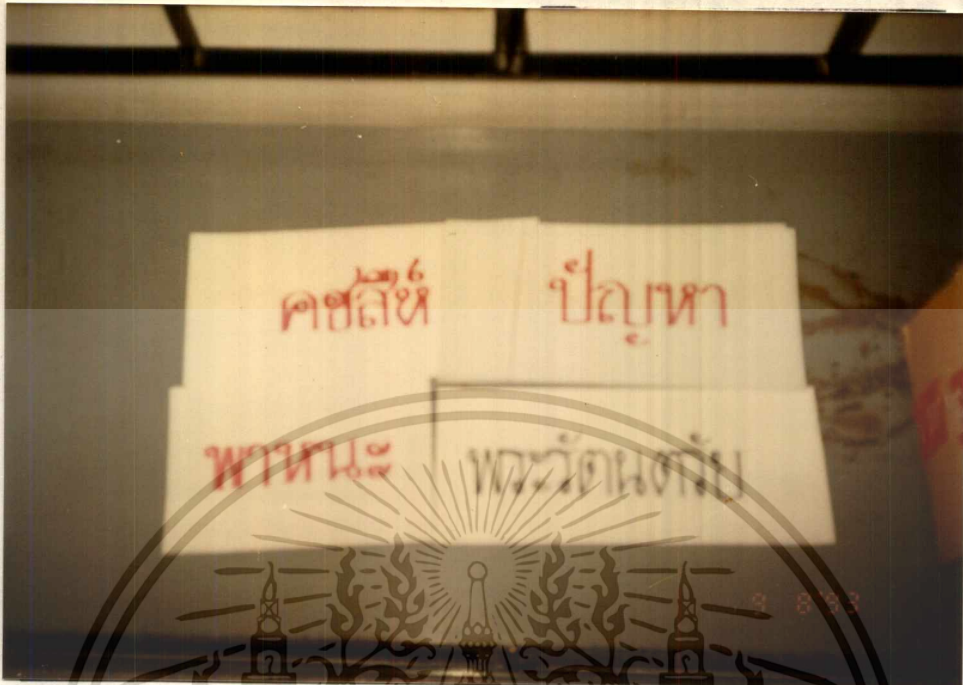 คชสีห์ ปัญหา
พาหนะ พระรัตนตรัย
9 8'93